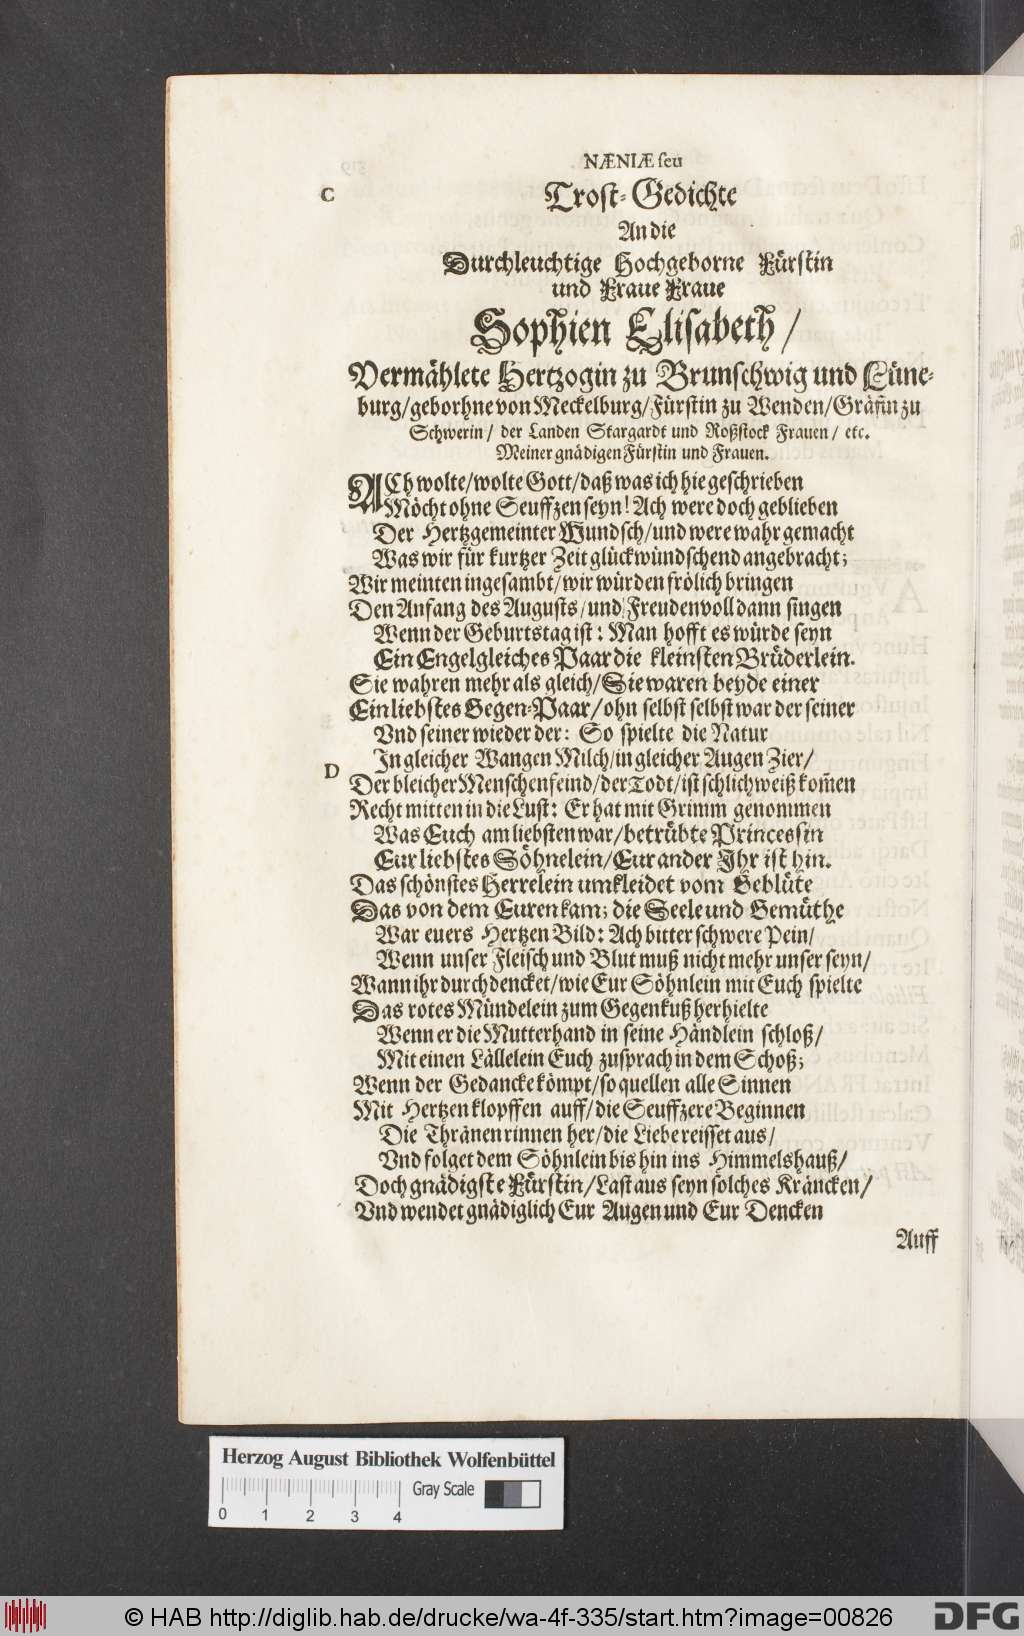 NÆNIÆ seu
C
Trost-Gedichte
An die
Durchleuchtige Hochgeborne Fürstin
und Fraue Fraue
Sophien Elisabeth/
Vermählete Hertzogin zu Brunschwig und Lüne-
burg/geborhne von Meckelburg/Fürstin zu Wenden/Gräfin zu
Schwerin/ der Landen Stargardt und Roßstock Frauen/ etc.
Meiner gnädigen Fürstin und Frauen.
ACh wolte/wolte Gott/daß was ich hie geschrieben
Möcht ohne Seuffzen seyn! Ach were doch geblieben
Der Hertzgemeinter Wundsch/und were wahr gemacht
Was wir für kurtzer Zeit glückwündschend angebracht;
Wir meinten ingesambt/wir würden frölich bringen
Den Anfang des Augusts/und Freudenvoll dann singen
Wenn der Geburtstag ist: Man hofft es würde seyn
Ein Engelgleiches Paar die kleinsten Brüderlein.
Sie wahren mehr als gleich/Sie waren beyde einer
Ein liebstes Gegen-Paar/ohn selbst selbst war der seiner
Vnd seiner wieder der: So spielte die Natur
In gleicher Wangen Milch/in gleicher Augen Zier/
D
Der bleicher Menschenfeind/der Todt/ist schlichweiß kom̃en
Recht mitten in die Lust: Er hat mit Grimm genommen
Was Euch am liebsten war/betrübte Princessin
Eur liebstes Söhnelein/Eur ander Ihr ist hin.
Das schönstes Herrelein umkleidet vom Geblüte
Das von dem Euren kam; die Seele und Gemüthe
War euers Hertzen Bild: Ach bitter schwere Pein/
Wenn unser Fleisch und Blut muß nicht mehr unser seyn/
Wann ihr durchdencket/wie Eur Söhnlein mit Euch spielte
Das rotes Mündelein zum Gegenkuß herhielte
Wenn er die Mutterhand in seine Händlein schloß/
Mit einen Lällelein Euch zusprach in dem Schoß;
Wenn der Gedancke kömpt/so quellen alle Sinnen
Mit Hertzenklopffen auff/die Seuffzere Beginnen
Die Thränen rinnen her/die Liebe reisset aus/
Vnd folget dem Söhnlein bis hin ins Himmelshauß/
Doch gnädigste Fürstin/Last aus seyn solches Kräncken/
Vnd wendet gnädiglich Eur Augen und Eur Dencken
Auff
Herzog August Bibliothek Wolfenbüttel
Gray Scale
0 1 2 3 4
© HAB http://diglib.hab.de/drucke/wa-4f-335/start.htm?image=00826
DFG